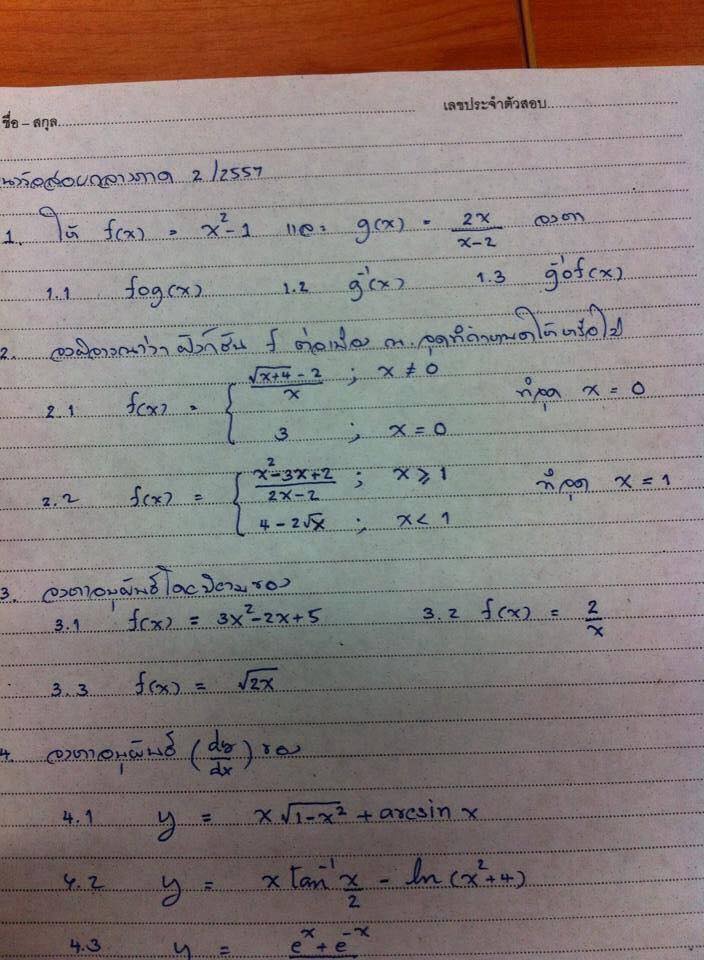 ชื่อ – สกุล.......... เลขประจำตัวสอบ..........
แนวข้อสอบกลางภาค 2/2557
1. ให้ f(x) = x² - 1 และ g(x) = 2x/(x-2) จงหา
1.1 fog(x) 1.2 g⁻¹(x) 1.3 g⁻¹of(x)
2. จงพิจารณาว่าฟังก์ชัน f ต่อเนื่อง ณ จุดที่กำหนดให้หรือไม่
2.1 f(x) = { (√(x+4) - 2)/x ; x ≠ 0 ที่จุด x = 0
3 ; x = 0
2.2 f(x) = { (x² - 3x + 2)/(2x - 2) ; x ⩾ 1 ที่จุด x = 1
4 - 2√x ; x < 1
3. จงหาอนุพันธ์โดยนิยามของ
3.1 f(x) = 3x² - 2x + 5 3.2 f(x) = 2/x
3.3 f(x) = √(2x)
4. จงหาอนุพันธ์ (dy/dx) ของ
4.1 y = x√(1-x²) + arcsin x
4.2 y = x tan⁻¹ x/2 - ln(x²+4)
4.3 y = eˣ + e⁻ˣ